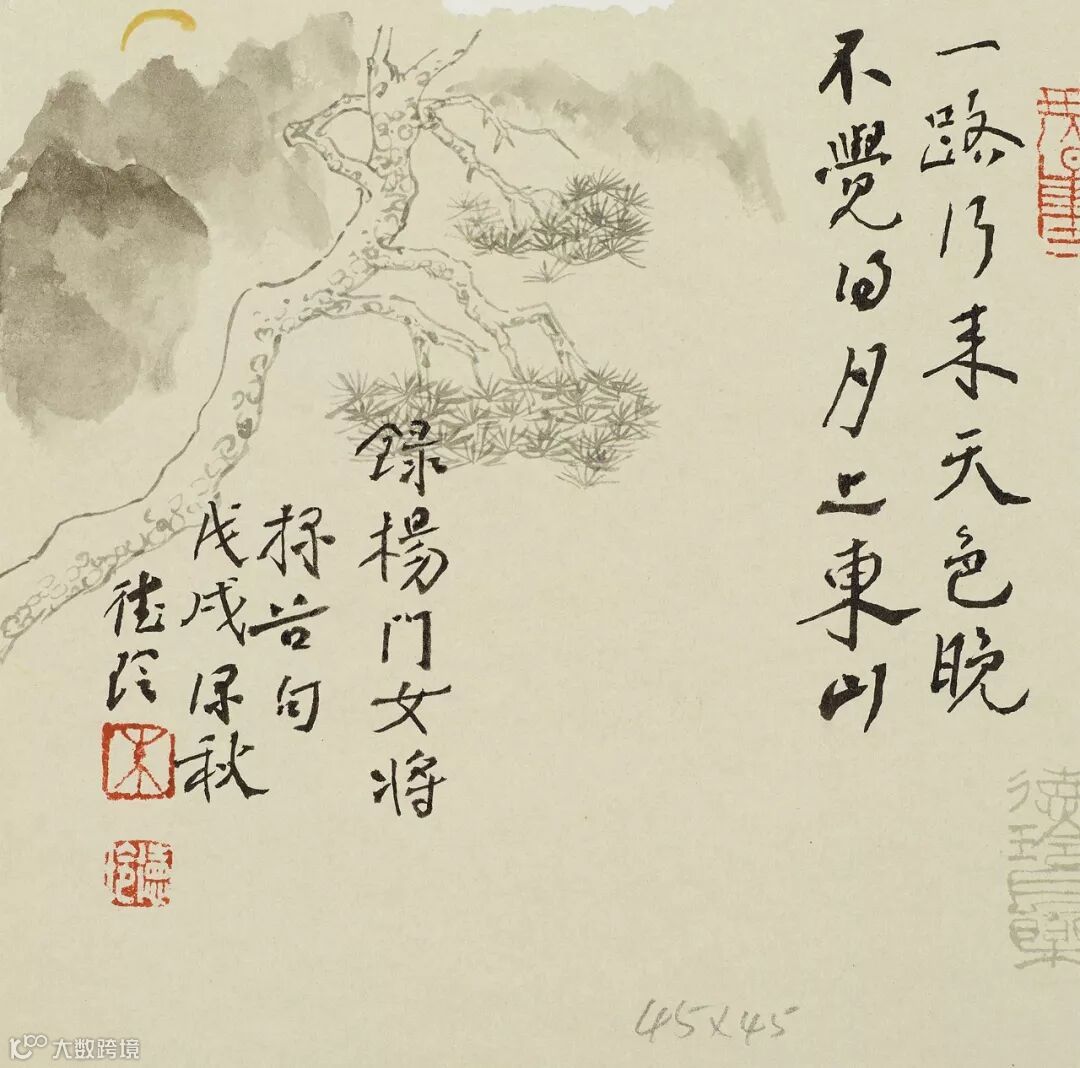 一路行来天色晚
不覺的月上東山
録楊門女将
探谷句
戊戌深秋
德玲
朱
45×45
大数跨境